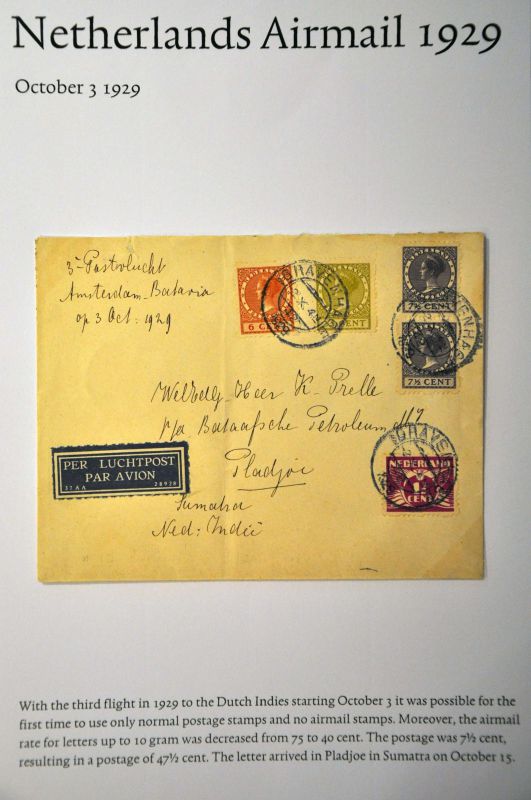 Netherlands Airmail 1929
October 3 1929
3e Postvlucht
Amsterdam-Batavia
op 3 Oct. 1929
'S GRAVENHAGE
6 CENT
CENT
7½ CENT
7½ CENT
WelEdg. Heer K. Prelle
p/a Bataafsche Petroleum My
Pladjoe
Sumatra
Ned: Indië
PER LUCHTPOST
PAR AVION
37 AA 28928
'S GRAVENHAGE
NEDERLAND
CENT
With the third flight in 1929 to the Dutch Indies starting October 3 it was possible for the
first time to use only normal postage stamps and no airmail stamps. Moreover, the airmail
rate for letters up to 10 gram was decreased from 75 to 40 cent. The postage was 7½ cent,
resulting in a postage of 47½ cent. The letter arrived in Pladjoe in Sumatra on October 15.